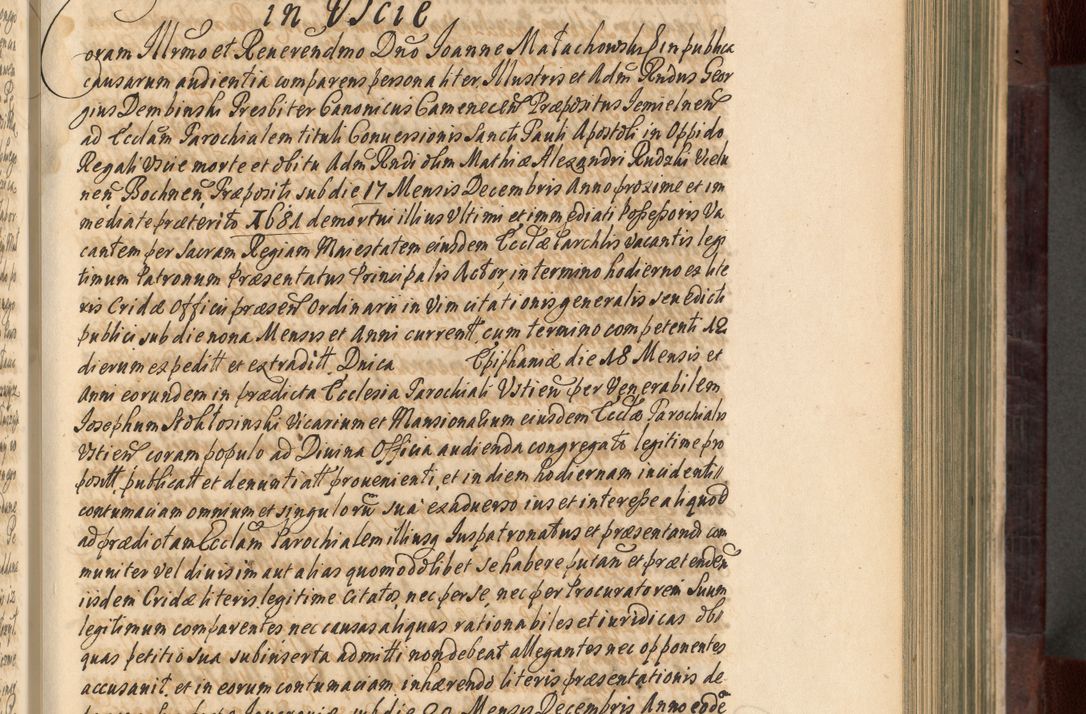 in Uscie
oram Illrmo et Reverendmo Dno Joanne Małachowski in publica
causarum audientia comparens personaliter, Illustris et Adm Rndus Geor
gius Dembinski Presbiter Canonicus Camenecen Præpositus Jemielnen
ad Ecclam Parochialem tituli Conversionis Sancti Pauli Apostoli in Oppido
Regali Uscie morte et obitu Adm Rndi olim Mathiæ Alexandri Rudzki Vielu
nen Bochnen Præpositi sub die 17 Mensis Decembris Anno proxime et im
mediate præterito 1681 demortui illius Ultimi et immediati Possessoris Va
cantem per Sacram Regiam Maiestatem eiusdem Ecclæ Parchlis vacantis legi
timum Patronum Præsentatus Principalis Actor, in termino hodierno ex lite
ris Cridæ Officii præsen Ordinarii in Vim citationis generalis seu edicti
publici sub die nona Mensis et Anni currentt, cum termino competenti 12
dierum expeditt et extraditt, Dnica Epiphaniæ die 18 Mensis et
Anni eorundem in prædicta Ecclesia Parochiali Ustien per Venerabilem
Josephum Vicarium et Mansionarium eiusdem Ecclæ Parochialis
Ustien coram populo ad Divina Officia audienda congregato legitime pro
positt publicatt et denuntiatt provenienti, et in diem hodiernam incidenti,
contumaciam omnium et singulorū sua ex adverso ius et interesse aliquod
ad prædictam Ecclam Parochialem illiusq Juspatronatus et præsentandi com
muniter vel divisim aut alias quomodolibet se habere putan et prætenden
iisdem Cridæ literis legitime Citatos, nec per se, nec per Procuratorem Suum
legitimum comparentes nec causas aliquas rationabiles et iuridicas obl
quas petitio sua subinserta admitti non debeat allegantes nec opponentes
accusavit, et in eorum contumaciam inhærendo literis præsentationis de
sub die 20 Mensis Decembris Anno eodē